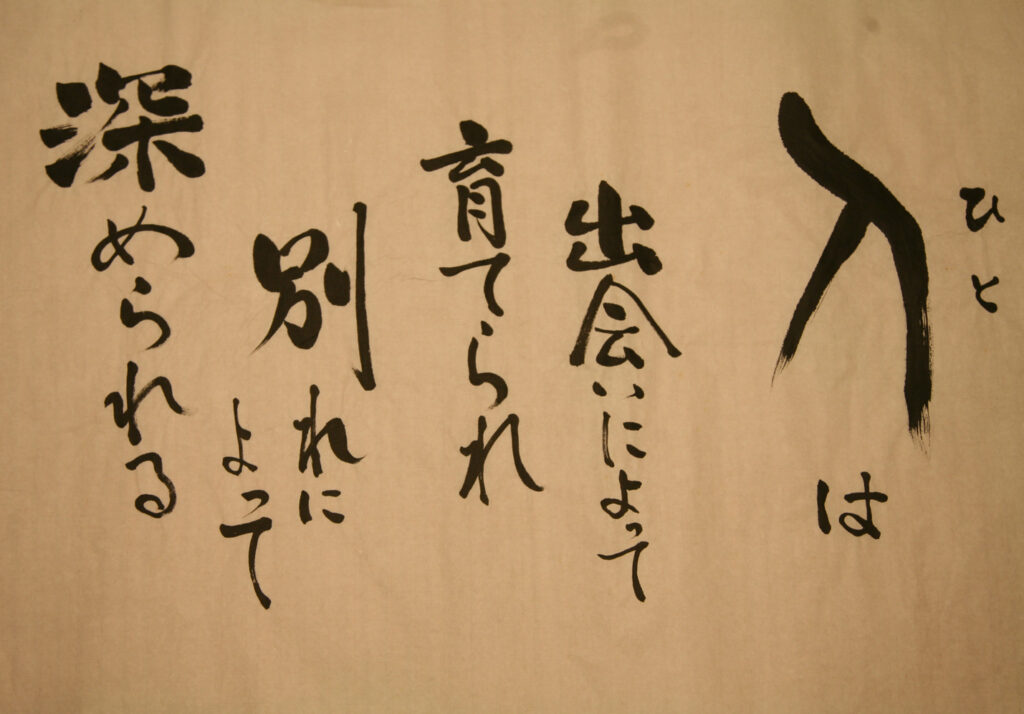 ひと
人は
出会いによって
育てられ
別れに
よって
深められる